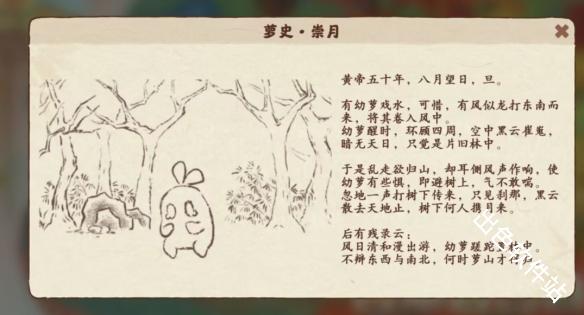 萝史·崇月
黄帝五十年，八月望日，旦。
有幼萝戏水，可惜，有风似龙打东南而
来，将其卷入风中。
幼萝醒时，环顾四周，空中黑云崔嵬，
暗无天日，只觉是片旧林中。
于是乱走欲归山，却耳侧风声作响，使
幼萝有些惧，即避树上，气不敢喘。
忽地一声打树下传来，只见刹那，黑云
散去天地止，树下何人携月来。
后有残录云：
风日清和漫出游，幼萝蹉跎 林中。
不辩东西与南北，何时萝山才
出色软件站